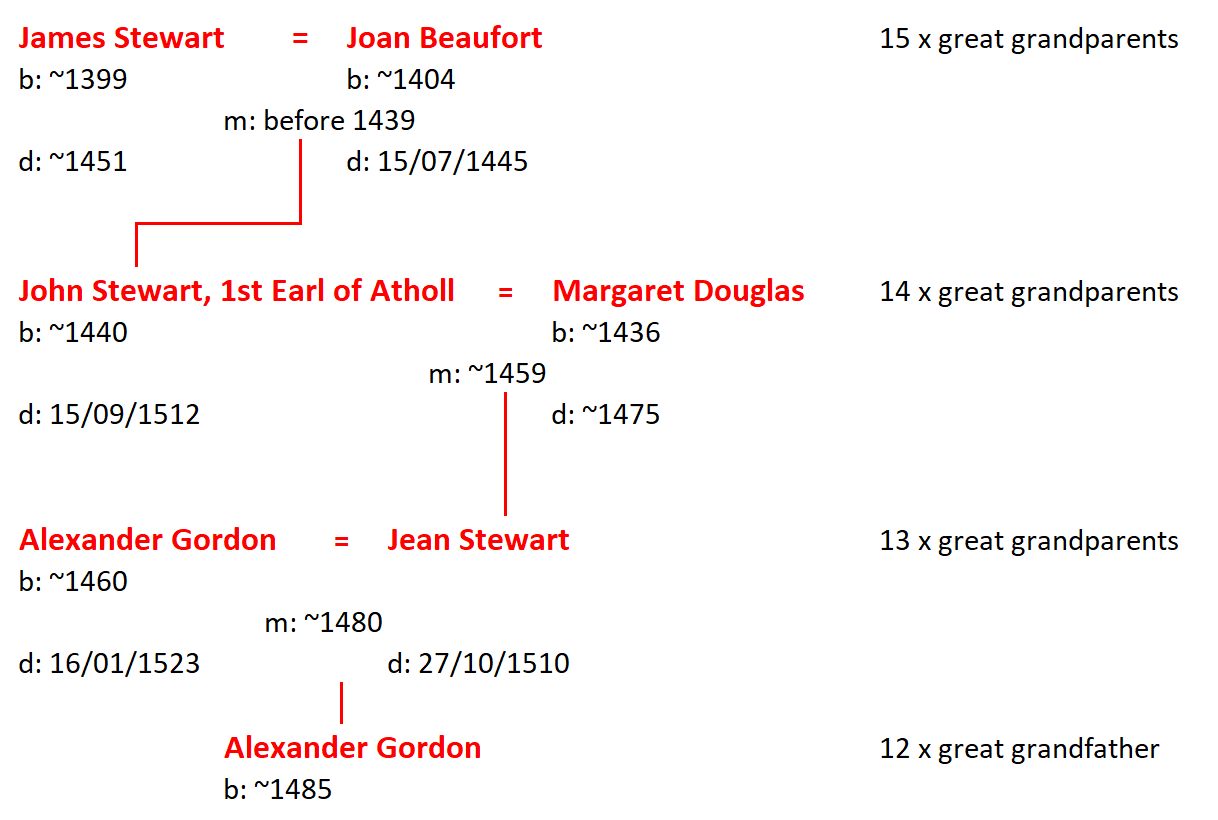 James Stewart = Joan Beaufort 15 x great grandparents
b: ~1399 b: ~1404
m: before 1439
d: ~1451 d: 15/07/1445
John Stewart, 1st Earl of Atholl = Margaret Douglas 14 x great grandparents
b: ~1440 b: ~1436
m: ~1459
d: 15/09/1512 d: ~1475
Alexander Gordon = Jean Stewart 13 x great grandparents
b: ~1460
m: ~1480
d: 16/01/1523 d: 27/10/1510
Alexander Gordon 12 x great grandfather
b: ~1485